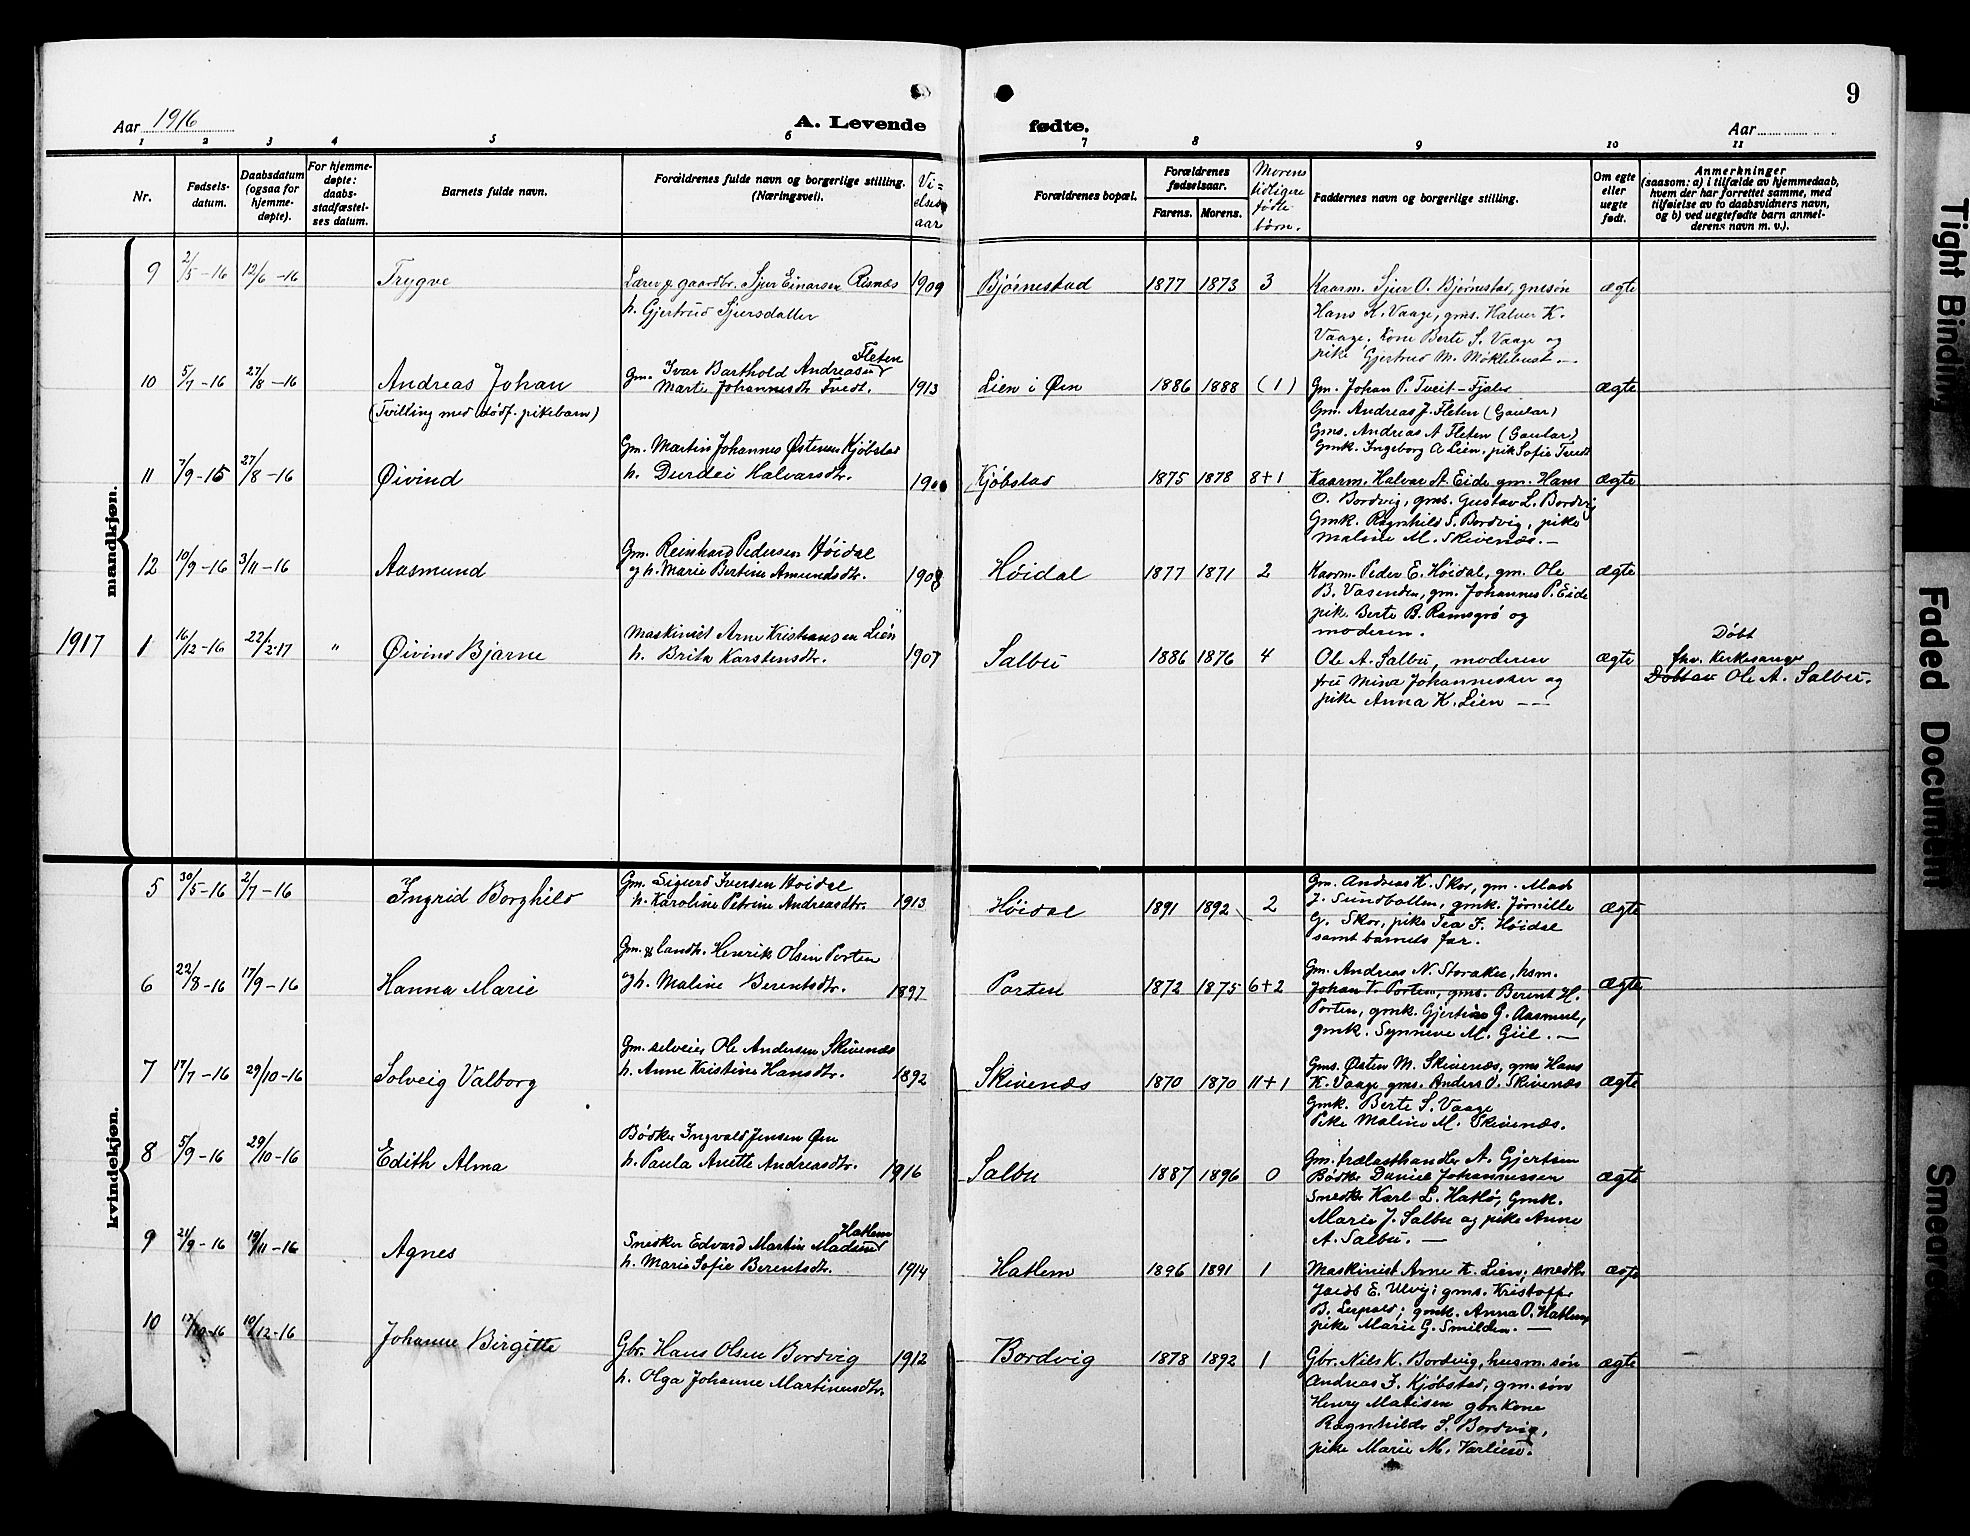 Aar 1916
A. Levende
fødte.
Aar
9
1 2 3 4 5 6 7 8 9 10 11
Nr.
Fødsels-
datum.
Daabsdatum
(ogsaa for
hjemme-
døpte).
For hjemme-
døpte:
daabs-
stadfæstel-
ses datum.
Barnets fulde navn.
Forældrenes fulde navn og borgerlige stilling.
(Næringsvei).
Vi-
elses
aar
Forældrenes bopæl.
Forældrenes
fødselsaar.
Farens.
Morens.
Morens
tidligere
fødte
børn.
Faddernes navn og borgerlige stilling.
Om egte
eller
uegte
født.
Anmerkninger
(saasom: a) i tilfælde av hjemmedaab,
hvem der har forrettet samme, med
tilføielse av to daabsvidners navn,
og b) ved uegtefødte barn anmel-
derens navn m. v.).
mandkjøn.
9 2/5-16 12/6-16 Trygve
Lærer & gaardbr. Sjur Einarsen Risnæs
h. Gjertrud Sjursdatter
1909 Bjørnestad 1877 1873 3
Kaarm. Sjur O. Bjørnestad, gmsøn
Hans K. Vaage, gms. Halvor K.
Vaage, Kone Berte S. Vaage og
pike Gjertrud M. Møklebust. —
ægte
10 5/7-16 27/8-16 Andreas Johan
(Tvilling med dødf. pikebarn)
Gm. Ivar Barthold Andreasen Fleten
Marte Johannesdt. Tvedt.
1913 Lien i Øen 1886 1888 (1)
Gm. Johan P. Tveit - Fjaler
Gm. Andreas J. Fleten (Gaular)
Gms. Andreas A Fleten (Gaular)
Gmk. Ingeborg A Lien, pik Sofie Tvedt
ægte
11 7/9-15 27/8-16 Øivind
Gm. Martin Johannes Østensen Kjøbstad
h. Durdei Halvarsdtr.
Kjøbstad 1875 1878 8+1
Kaarm. Halvar A. Eide gm. Hans
O. Bordvig, gms. Gustav L. Bordvig
Gmk. Ragnhild S. Bordvig, pike
Maline M. Skivenæs. —
ægte
12 10/9-16 3/11-16 Aasmund
Gm. Reinhard Pedersen Høidal
og h. Marie Bertine Amundsdtr.
1908 Høidal 1877 1871 2
Kaarm. Peder E. Høidal, gm. Ole
B. Vasenden, gm. Johannes P. Eide
pike Berte B. Ramsgrø og
moderen.
ægte
1917 1 16/12-16 22/2-17 " Øivind Bjarne
Maskinist Arne Kristiansen Lien
h. Brita Karstensdtr.
1907 Salbu 1886 1876 4
Ole A. Salbu, moderen
fru Mina Johannessen og
pike Anna K. Lien — —
ægte
Døbt
fhv. Kirkesanger
Døbt av Ole A. Salbu.
kvindekjøn.
5 30/5-16 2/7-16 Ingrid Borghild
Gm. Sigurd Iversen Høidal
h. Karoline Petrine Andreasdtr.
1913 Høidal 1891 1892 2
Gm. Andreas K. Skor, gm. Mads
J. Sundbotten, gmk. Jørnille
G. Skor, pike Tea F. Høidal
samt barnets far.
ægte
6 22/8-16 17/9-16 Hanna Marie
Gm. & landh. Henrik Olsen Porten
og h. Maline Berentsdtr.
1897 Porten 1872 1875 6+2
Gm. Andreas N. Storaker, hsm.
Johan V. Porten, gms. Berent H.
Porten, gmk. Gjertine G. Aasmul,
gmk. Synneve M. Giil. —
ægte
7 17/7-16 29/10-16 Solveig Valborg
Gm. selveier Ole Andersen Skivenæs
h. Anne Kristine Hansdtr.
1892 Skivenæs 1870 1870 11+1
Gms. Østen M. Skivenæs, gms Hans
K. Vaage gms. Anders O. Skivenæs
Gmk. Berte S. Vaage
Pike Maline M. Skivenæs.
ægte
8 5/9-16 29/10-16 Edith Alma
Bødker Ingvald Jensen Øen
h. Paula Anette Andreasdtr.
1916 Salbu 1887 1896 0
Gm. trælasthandler A. Gjertsen
Bødker Daniel Johannessen
Snedker Karl L. Hatlø, Gmk.
Marie J. Salbu og pike Anne
A. Salbu. —
ægte
9 21/9-16 19/11-16 Agnes
Snedker Edvard Martin Madsen Hatlem
h. Marie Sofie Berentsdtr.
1914 Hatlem 1896 1891 1
Maskinist Arne K. Lien, snedker
Jacob E. Ulvi; gms. Kristoffer
B. Leirpold; gmk. Anna O. Hatlem,
pike Marie G. Smilden. —
ægte
10 17/10-16 10/12-16 Johanne Birgitte
Gbr. Hans Olsen Bordvig
h. Olga Johanne Martinusdtr.
1912 Bordvig 1878 1892 1
Gbr. Nils K. Bordvig, husm. søn
Andreas J. Kjøbstad, gm. søn
Henry Matisen gbr. Kone
Ragnhilde S. Bordvig,
pike Marie M.
ægte
Tight Binding
Faded Document
Smeared